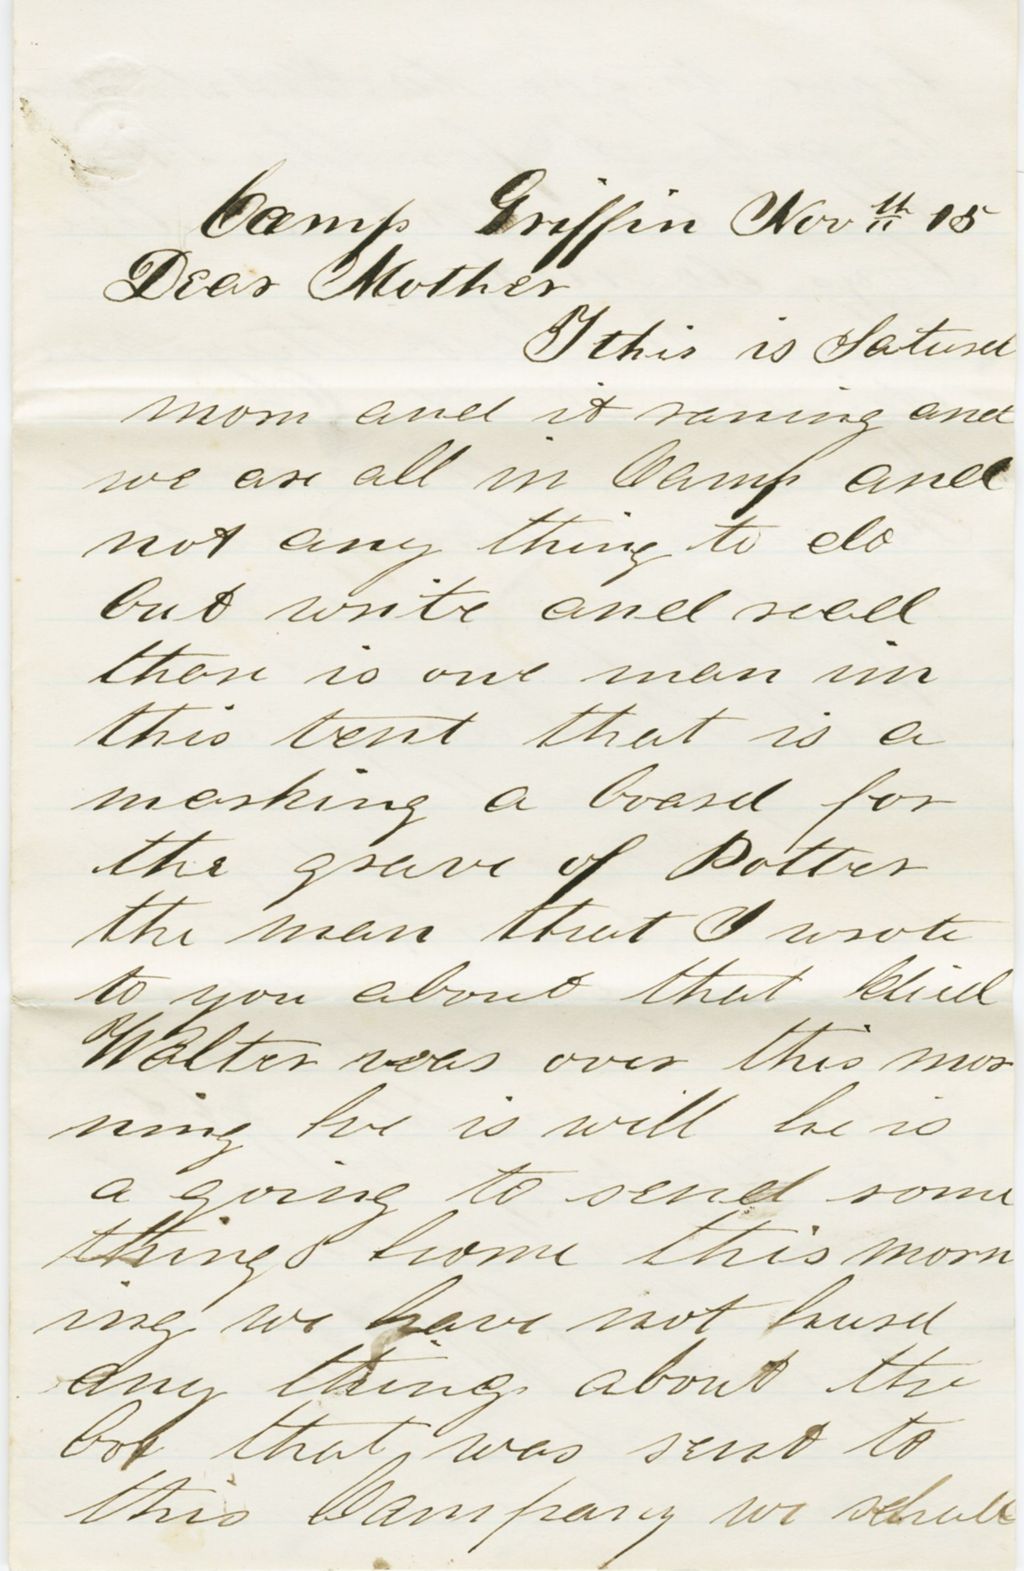 Camp Griffin Nov th 15
Dear Mother
I this is Saturd
morn and it raning and
we are all in Camp and
not any thing to do
but write and read
thare is one man in
this tent that is a
marking a board for
the grave of Potter
the man that I wrote
to you about that died
Walter was over this mor
ning he is will he is
a going to send some
things home this morn
ing we have not hurd
any thing about the
box that was sent to
this Campany we